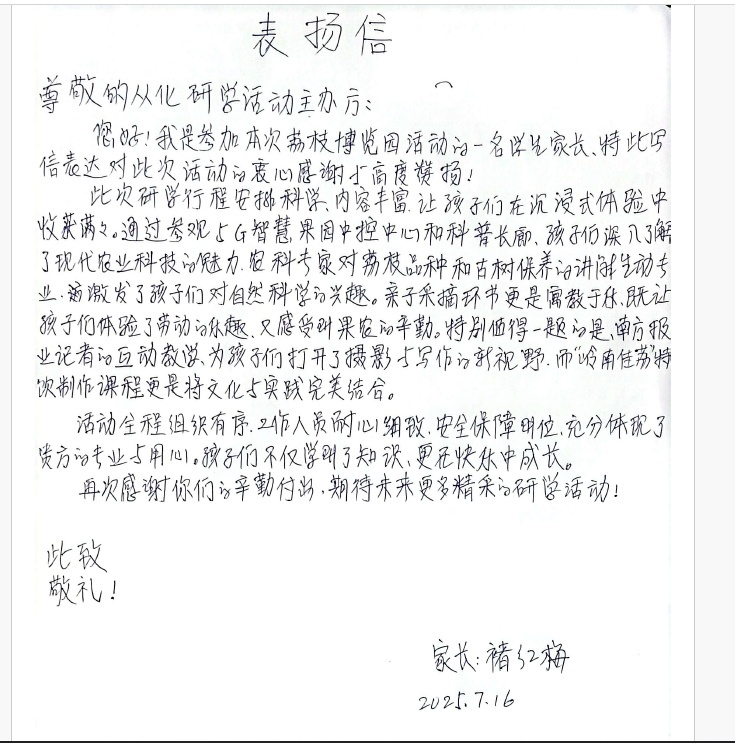 表扬信
尊敬的从化研学活动主办方:
您好!我是参加本次荔枝博览园活动的一名学生家长、特此写
信表达对此次活动的衷心感谢与高度赞扬!
此次研学行程安排科学、内容丰富,让孩子们在沉浸式体验中
收获满々。通过参观5G智慧果园中控中心和科普长廊、孩子们深入了解
了现代农业科技的魅力,农科专家对荔枝品种和古树保养的讲解生动专
业,激发了孩子们对自然科学的兴趣。亲子采摘环节更是寓教于乐,既让
孩子们体验了劳动的乐趣、又感受到果农的辛勤。特别值得一题的是,南方报
业记者的互动教学、为孩子们打开了摄影与写作的新视野,而“岭南佳荔”特
饮制作课程更是将文化与实践完美结合。
活动全程组织有序,工作人员耐心细致,安全保障到位,充分体现了
贵方的专业与用心。孩子们不仅学到了知识、更在快乐中成长。
再次感谢你们的辛勤付出,期待未来更多精采的研学活动!
此致
敬礼!
家长:褚红梅
2025.7.16